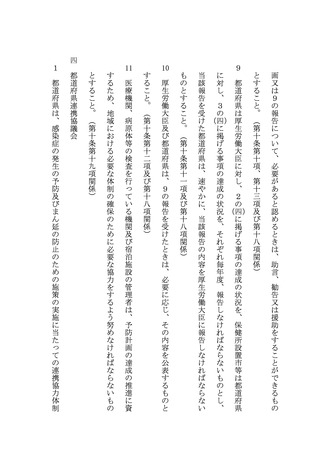 画又は９の報告について、必要があると認めるときは、助言、勧告又は援助をすることができるもの
とすること。（第十条第十項、第十三項及び第十八項関係）
９　都道府県は厚生労働大臣に対し、２の㈣に掲げる事項の達成の状況を、保健所設置市等は都道府県
に対し、３の㈣に掲げる事項の達成の状況を、それぞれ毎年度、報告しなければならないものとし、
当該報告を受けた都道府県は、速やかに、当該報告の内容を厚生労働大臣に報告しなければならない
ものとすること。（第十条第十一項及び第十八項関係）
10　厚生労働大臣及び都道府県は、９の報告を受けたときは、必要に応じ、その内容を公表するものと
すること。（第十条第十二項及び第十八項関係）
11　医療機関、病原体等の検査を行っている機関及び宿泊施設の管理者は、予防計画の達成の推進に資
するため、地域における必要な体制の確保のために必要な協力をするよう努めなければならないもの
とすること。（第十条第十九項関係）
四　都道府県連携協議会
１　都道府県は、感染症の発生の予防及びまん延の防止のための施策の実施に当たっての連携協力体制